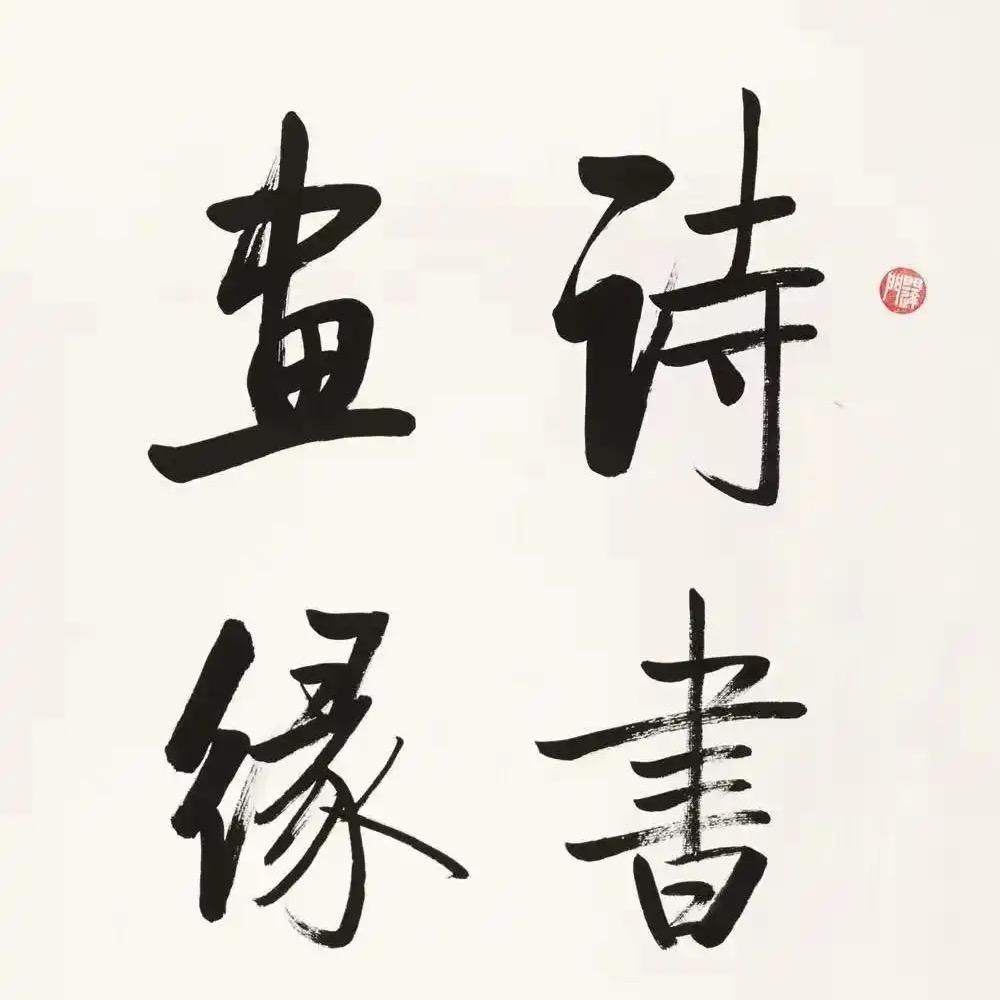 詩書
畫緣